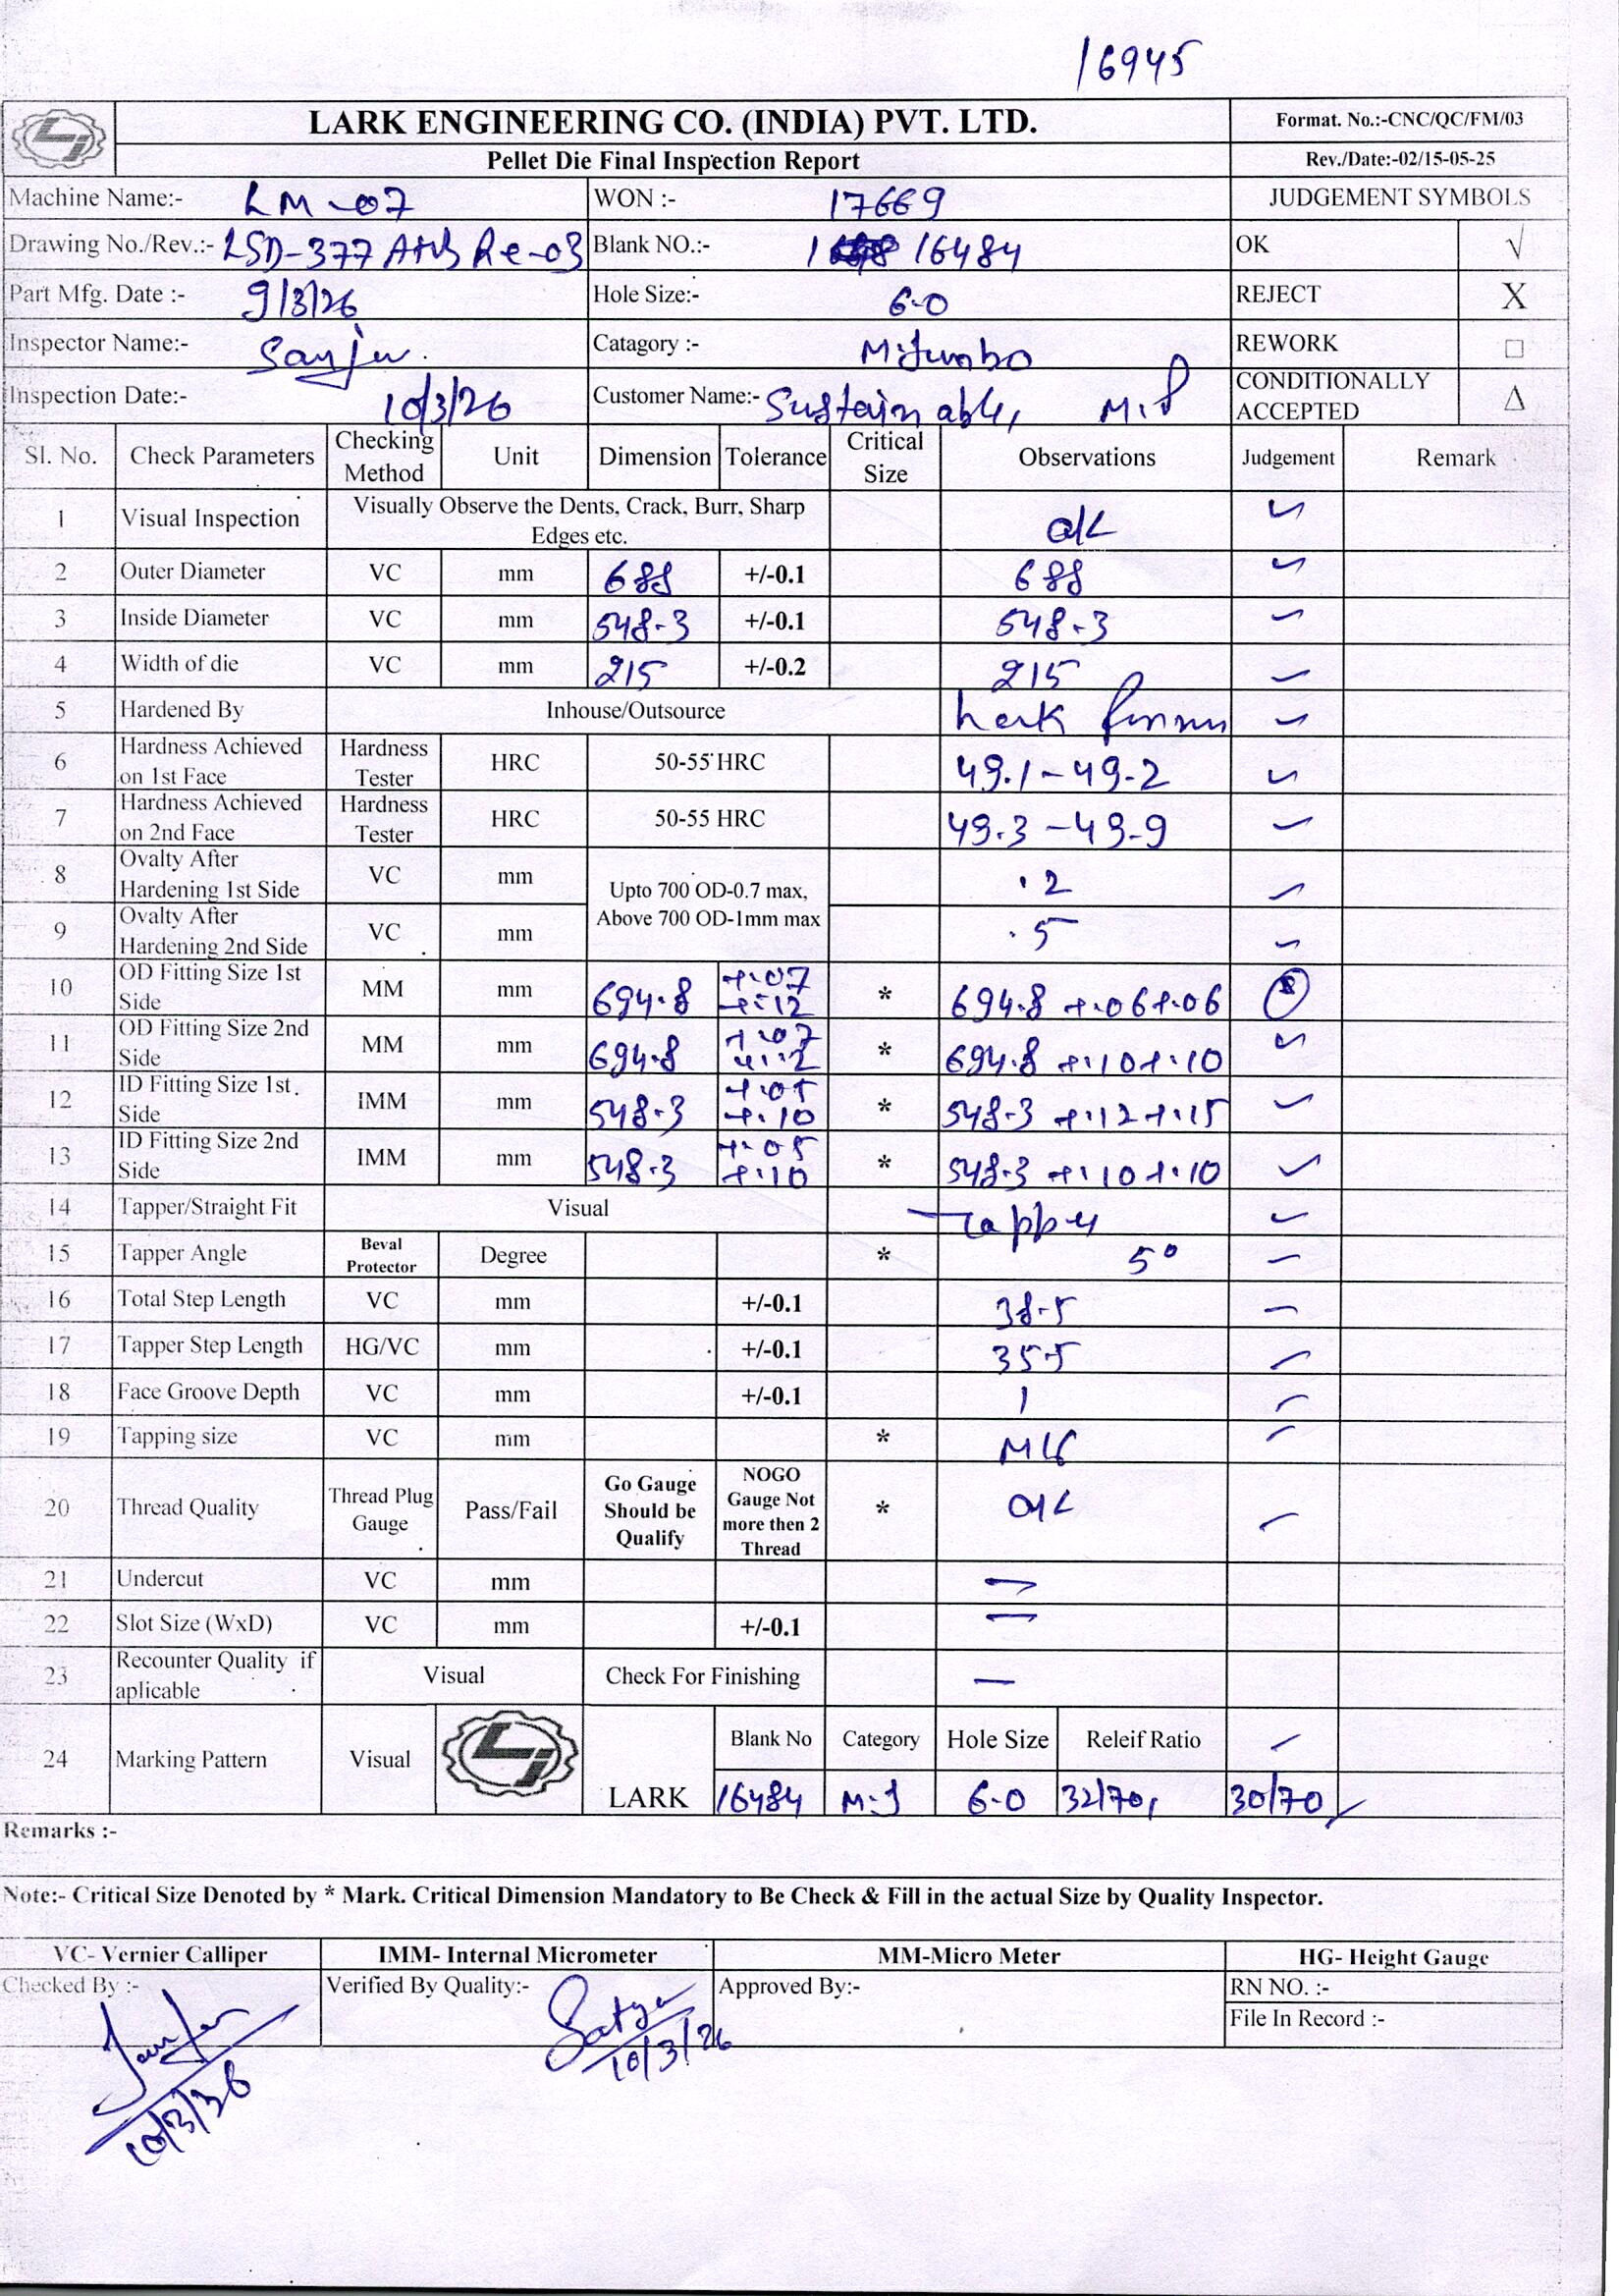 16945
LARK ENGINEERING CO. (INDIA) PVT. LTD. Format. No.:-CNC/QC/FM/03
Pellet Die Final Inspection Report Rev./Date:-02/15-05-25
Machine Name:- LM-07 WON :- 17669 JUDGEMENT SYMBOLS
Drawing No./Rev.:- LSD-377 Re-03 Blank NO.:- 16484 OK √
Part Mfg. Date :- 9/3/26 Hole Size:- 6.0 REJECT X
Inspector Name:- Sanju Catagory :- M.Jumbo REWORK □
Inspection Date:- 10/3/26 Customer Name:- Sustainable, M.P CONDITIONALLY ACCEPTED Δ
Sl. No. Check Parameters Checking Method Unit Dimension Tolerance Critical Size Observations Judgement Remark
1 Visual Inspection Visually Observe the Dents, Crack, Burr, Sharp Edges etc. ok ✓
2 Outer Diameter VC mm 688 +/-0.1 688 ✓
3 Inside Diameter VC mm 548.3 +/-0.1 548.3 ✓
4 Width of die VC mm 215 +/-0.2 215 ✓
5 Hardened By Inhouse/Outsource ✓
6 Hardness Achieved on 1st Face Hardness Tester HRC 50-55 HRC 49.1-49.2 ✓
7 Hardness Achieved on 2nd Face Hardness Tester HRC 50-55 HRC 49.3-49.9 ✓
8 Ovalty After Hardening 1st Side VC mm Upto 700 OD-0.7 max, Above 700 OD-1mm max .2 ✓
9 Ovalty After Hardening 2nd Side VC mm .5 ✓
10 OD Fitting Size 1st Side MM mm 694.8 +.07 +.12 * 694.8 +.06+.06
11 OD Fitting Size 2nd Side MM mm 694.8 +.07 +.12 * 694.8 +.10+.10 ✓
12 ID Fitting Size 1st Side IMM mm 548.3 +.05 +.10 * 548.3 +.12+.15 ✓
13 ID Fitting Size 2nd Side IMM mm 548.3 +.05 +.10 * 548.3 +.10+.10 ✓
14 Tapper/Straight Fit Visual Tapper ✓
15 Tapper Angle Beval Protector Degree * 5° ✓
16 Total Step Length VC mm +/-0.1 38.5 ✓
17 Tapper Step Length HG/VC mm +/-0.1 35.5 ✓
18 Face Groove Depth VC mm +/-0.1 1 ✓
19 Tapping size VC mm * M16 ✓
20 Thread Quality Thread Plug Gauge Pass/Fail Go Gauge Should be Qualify NOGO Gauge Not more then 2 Thread * ok ✓
21 Undercut VC mm —
22 Slot Size (WxD) VC mm +/-0.1 —
23 Recounter Quality if aplicable Visual Check For Finishing —
24 Marking Pattern Visual LARK Blank No Category Hole Size Releif Ratio ✓
16484 M.J 6.0 32/70, 30/70
Remarks :-
Note:- Critical Size Denoted by * Mark. Critical Dimension Mandatory to Be Check & Fill in the actual Size by Quality Inspector.
VC- Vernier Calliper IMM- Internal Micrometer MM-Micro Meter HG- Height Gauge
Checked By :- Verified By Quality:- Approved By:- RN NO. :-
File In Record :-
Sanju Satya
10/3/26 10/3/26